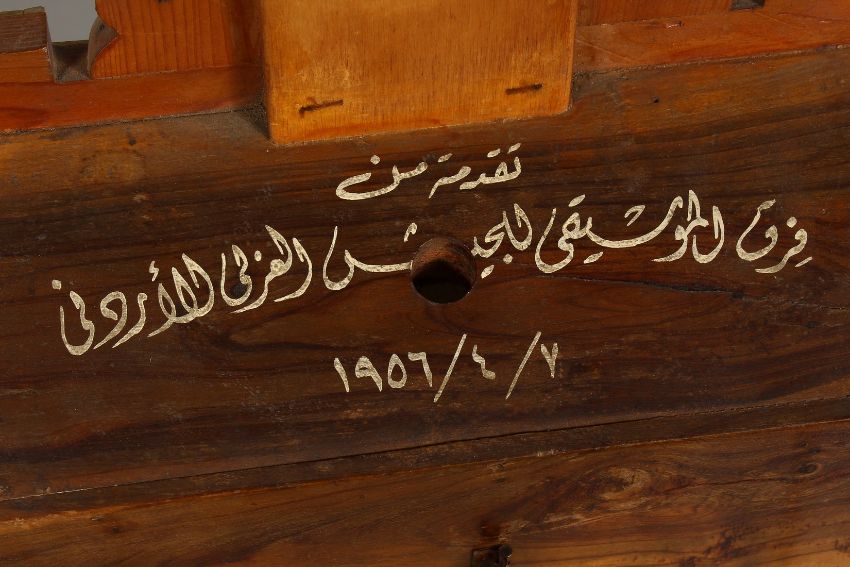 تقدمة من
فرق الموسيقى للجيش العربي الأردني
٧/٤/١٩٥٦